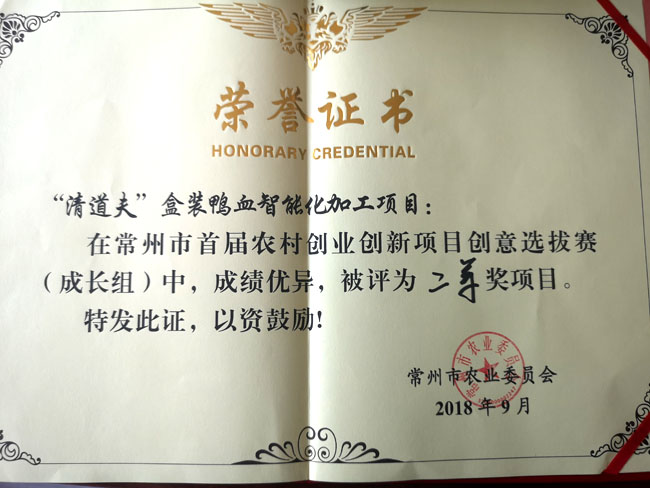 荣誉证书
HONORARY CREDENTIAL
“清道夫”盒装鸭血智能化加工项目：
在常州市首届农村创业创新项目创意选拔赛
（成长组）中，成绩优异，被评为 二等 奖项目。
特发此证，以资鼓励！
常州市农业委员会
2018 年 9 月